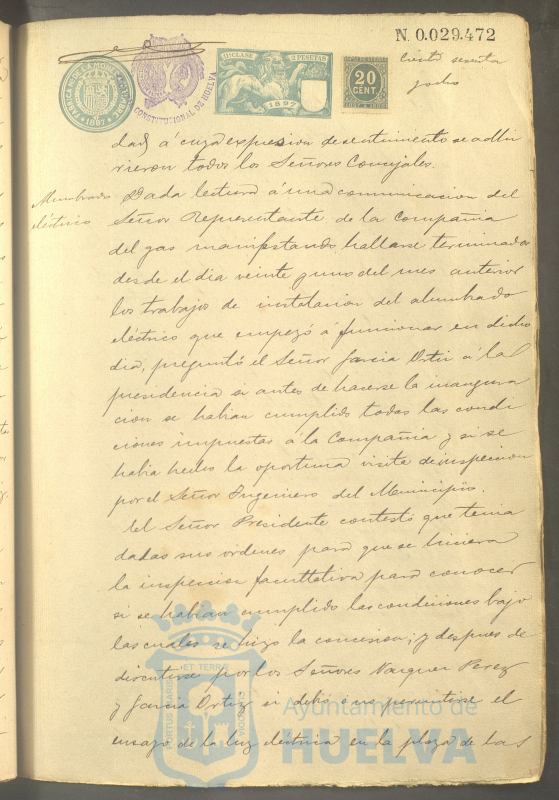 N. 0.029.472
Ciento sesenta
y ocho
FÁBRICA DE LA MONEDA Y TIMBRE
1897
CONSTITUCIONAL DE HUELVA
11ª CLASE 2 PESETAS
1897
20
CENT.
dad á cuya expresion de sentimiento se adhi
rieron todos los Señores Concejales.
Alumbrado
eléctrico
Dada lectura á una comunicacion del
Señor Representante de la Compañia
del gas manifestando hallarse terminados
desde el dia veinte y uno del mes anterior
los trabajos de instalacion del alumbrado
eléctrico que empezó a funcionar en dicho
dia, preguntó el Señor Garcia Ortiz á la
presidencia si antes de hacerse la inaugura
cion se habian cumplido todas las condi
ciones impuestas á la Compañia y si se
habia hecho la oportuna visita de inspeccion
por el Señor Ingeniero del Municipio.
El Señor Presidente contestó que tenia
dadas sus ordenes para que se hiciera
la inspeccion facultativa para conocer
si se habian cumplido las condiciones bajo
las cuales se hizo la concesion; y despues de
discutirse por los Señores Vazquez Perez
y Garcia Ortiz si debió ó no permitirse el
ensayo de la luz eléctrica en la plaza de las
PORTUS MARIS ET TERRÆ CUSTODIA
Ayuntamiento de
HUELVA